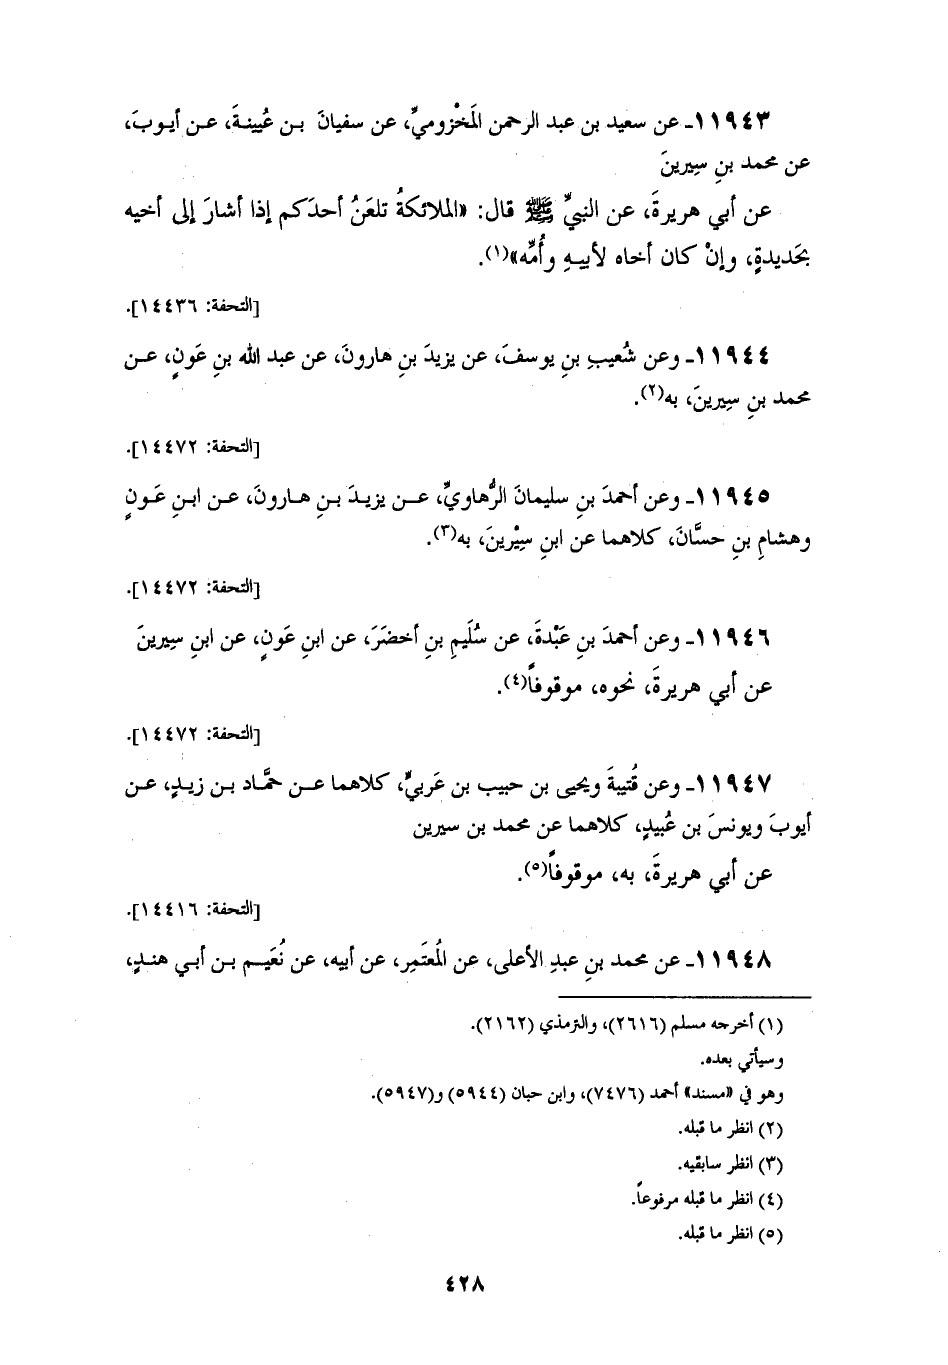 ١١٩٤٣ـ عن سعيد بن عبد الرحمن المَخْزوميِّ، عن سفيانَ بـن عُيينـةَ، عـن أيـوبَ،
عن محمد بنِ سِيرينَ
عن أبي هريرةَ، عن النبيِّ ﷺ قال: «الملائكةُ تلعَنُ أحدَكم إذا أشارَ إلى أخيه
بحَديدةٍ، وإنْ كان أخاه لأبيـهِ وأُمِّه»(١).
[التحفة: ١٤٤٣٦].
١١٩٤٤ـ وعن شُعيبِ بنِ يوسفَ، عن يزيدَ بنِ هارونَ، عن عبد الله بنِ عَونٍ، عـن
محمد بنِ سِيرينَ، به(٢).
[التحفة: ١٤٤٧٢].
١١٩٤٥ـ وعن أحمدَ بنِ سليمانَ الرُّهاويِّ، عـن يزيـدَ بـنِ هـارونَ، عـن ابـنِ عَـونٍ
وهشامِ بنِ حسَّانَ، كلاهما عن ابنِ سِيْرينَ، به(٣).
[التحفة: ١٤٤٧٢].
١١٩٤٦ـ وعن أحمدَ بنِ عَبْدةَ، عن سُلَيمِ بنِ أخضَرَ، عن ابنِ عَونٍ، عن ابنِ سِيرينَ
عن أبي هريرةَ، نحوه، موقوفاً(٤).
[التحفة: ١٤٤٧٢].
١١٩٤٧ـ وعن قُتيبةَ ويحيى بن حبيب بن عَربيٍّ، كلاهما عـن حمَّاد بـن زيـدٍ، عـن
أيوبَ ويونسَ بن عُبيدٍ، كلاهما عن محمد بن سيرين
عن أبي هريرةَ، به، موقوفاً(٥).
[التحفة: ١٤٤١٦].
١١٩٤٨ـ عن محمد بنِ عبدِ الأعلى، عن المُعتَمِر، عن أبيه، عن نُعَيـم بـن أبـي هنـدٍ،
(١) أخرجه مسلم (٢٦١٦)، والترمذي (٢١٦٢).
وسيأتي بعده.
وهو في «مسند» أحمد (٧٤٧٦)، وابن حبان (٥٩٤٤) و(٥٩٤٧).
(٢) انظر ما قبله.
(٣) انظر سابقيه.
(٤) انظر ما قبله مرفوعاً.
(٥) انظر ما قبله.
٤٢٨